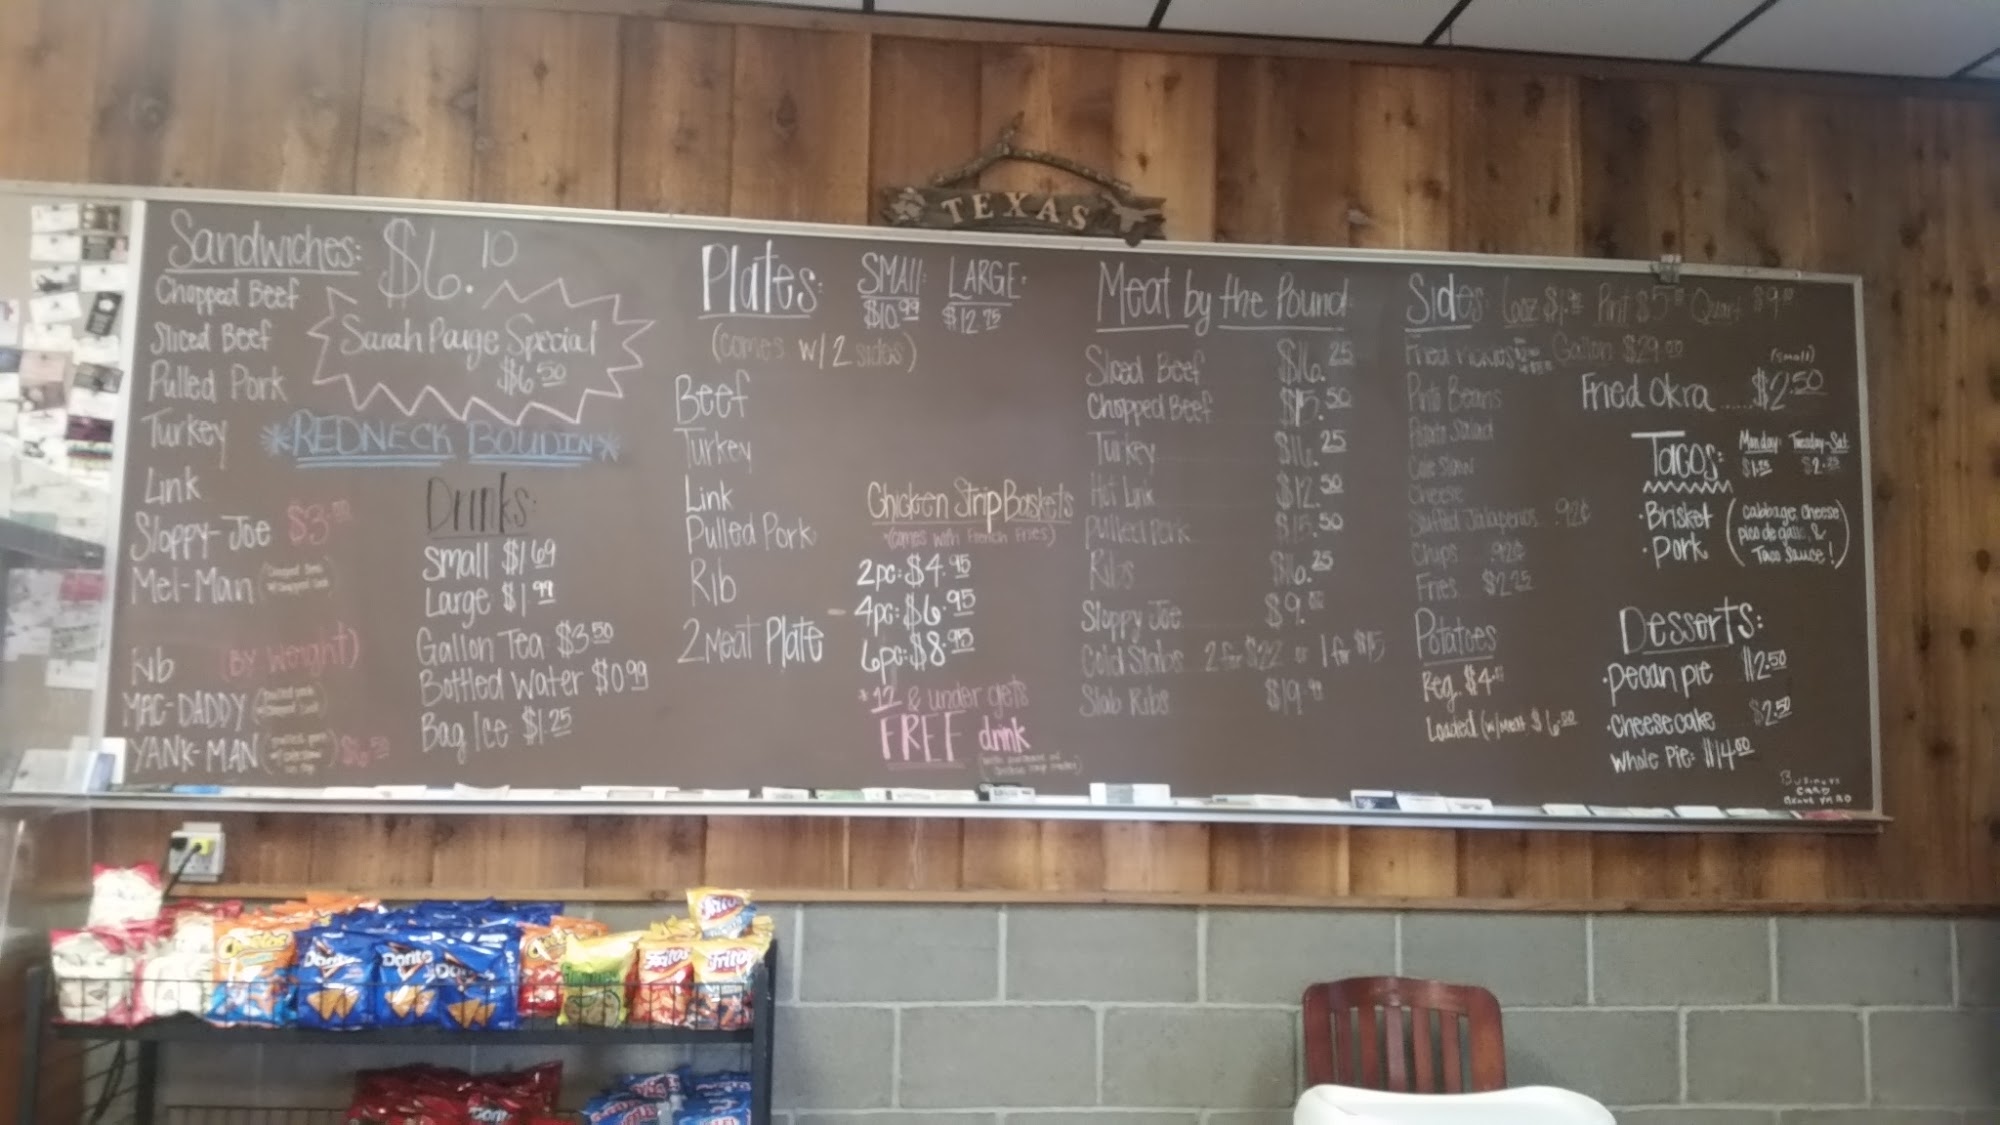 TEXAS
Sandwiches: $6.10
Chopped Beef
Sliced Beef
Pulled Pork
Turkey
Link
Sloppy-Joe $3
Mel-Man
Rib (By Weight)
MAC-DADDY
YANK-MAN
Sarah Paige Special
$6.50
*REDNECK BOUDIN*
Drinks:
Small $1.69
Large $1.99
Gallon Tea $3.50
Bottled Water $0.99
Bag Ice $1.25
Plates:
SMALL: LARGE:
$10.99 $12.75
(comes w/ 2 sides)
Beef
Turkey
Link
Pulled Pork
Rib
2 Meat Plate
Chicken Strip Baskets
*(comes with French Fries)
2pc: $4.95
4pc: $6.95
6pc: $8.95
*12 & under gets
FREE drink
Meat by the Pound
Sliced Beef $16.25
Chopped Beef $15.50
Turkey $16.25
Hot Link $12.50
Pulled Pork $15.50
Ribs $16.25
Sloppy Joe $9.
Cold Slabs 2 for $22 or 1 for $15
Slab Ribs $19.
Sides: Pint $5 Quart $9
Fried Pickles Gallon $29
Pinto Beans
Potato Salad
Cole Slaw
Cheese
Stuffed Jalapenos .92¢
Chips .92¢
Fries $2.25
Potatoes
Reg. $4.
Loaded (w/Meat) $6.
(small)
Fried Okra ..... $2.50
Tacos:
Monday: Tuesday-Sat:
·Brisket
·Pork
(cabbage, cheese,
pico de gallo, &
Taco Sauce!)
Desserts:
·Pecan pie $2.50
·Cheesecake $2.50
Whole Pie: $14.00
BUSINESS
CARD
Cheetos
Doritos
Doritos
Doritos
Fritos
Fritos
Fritos